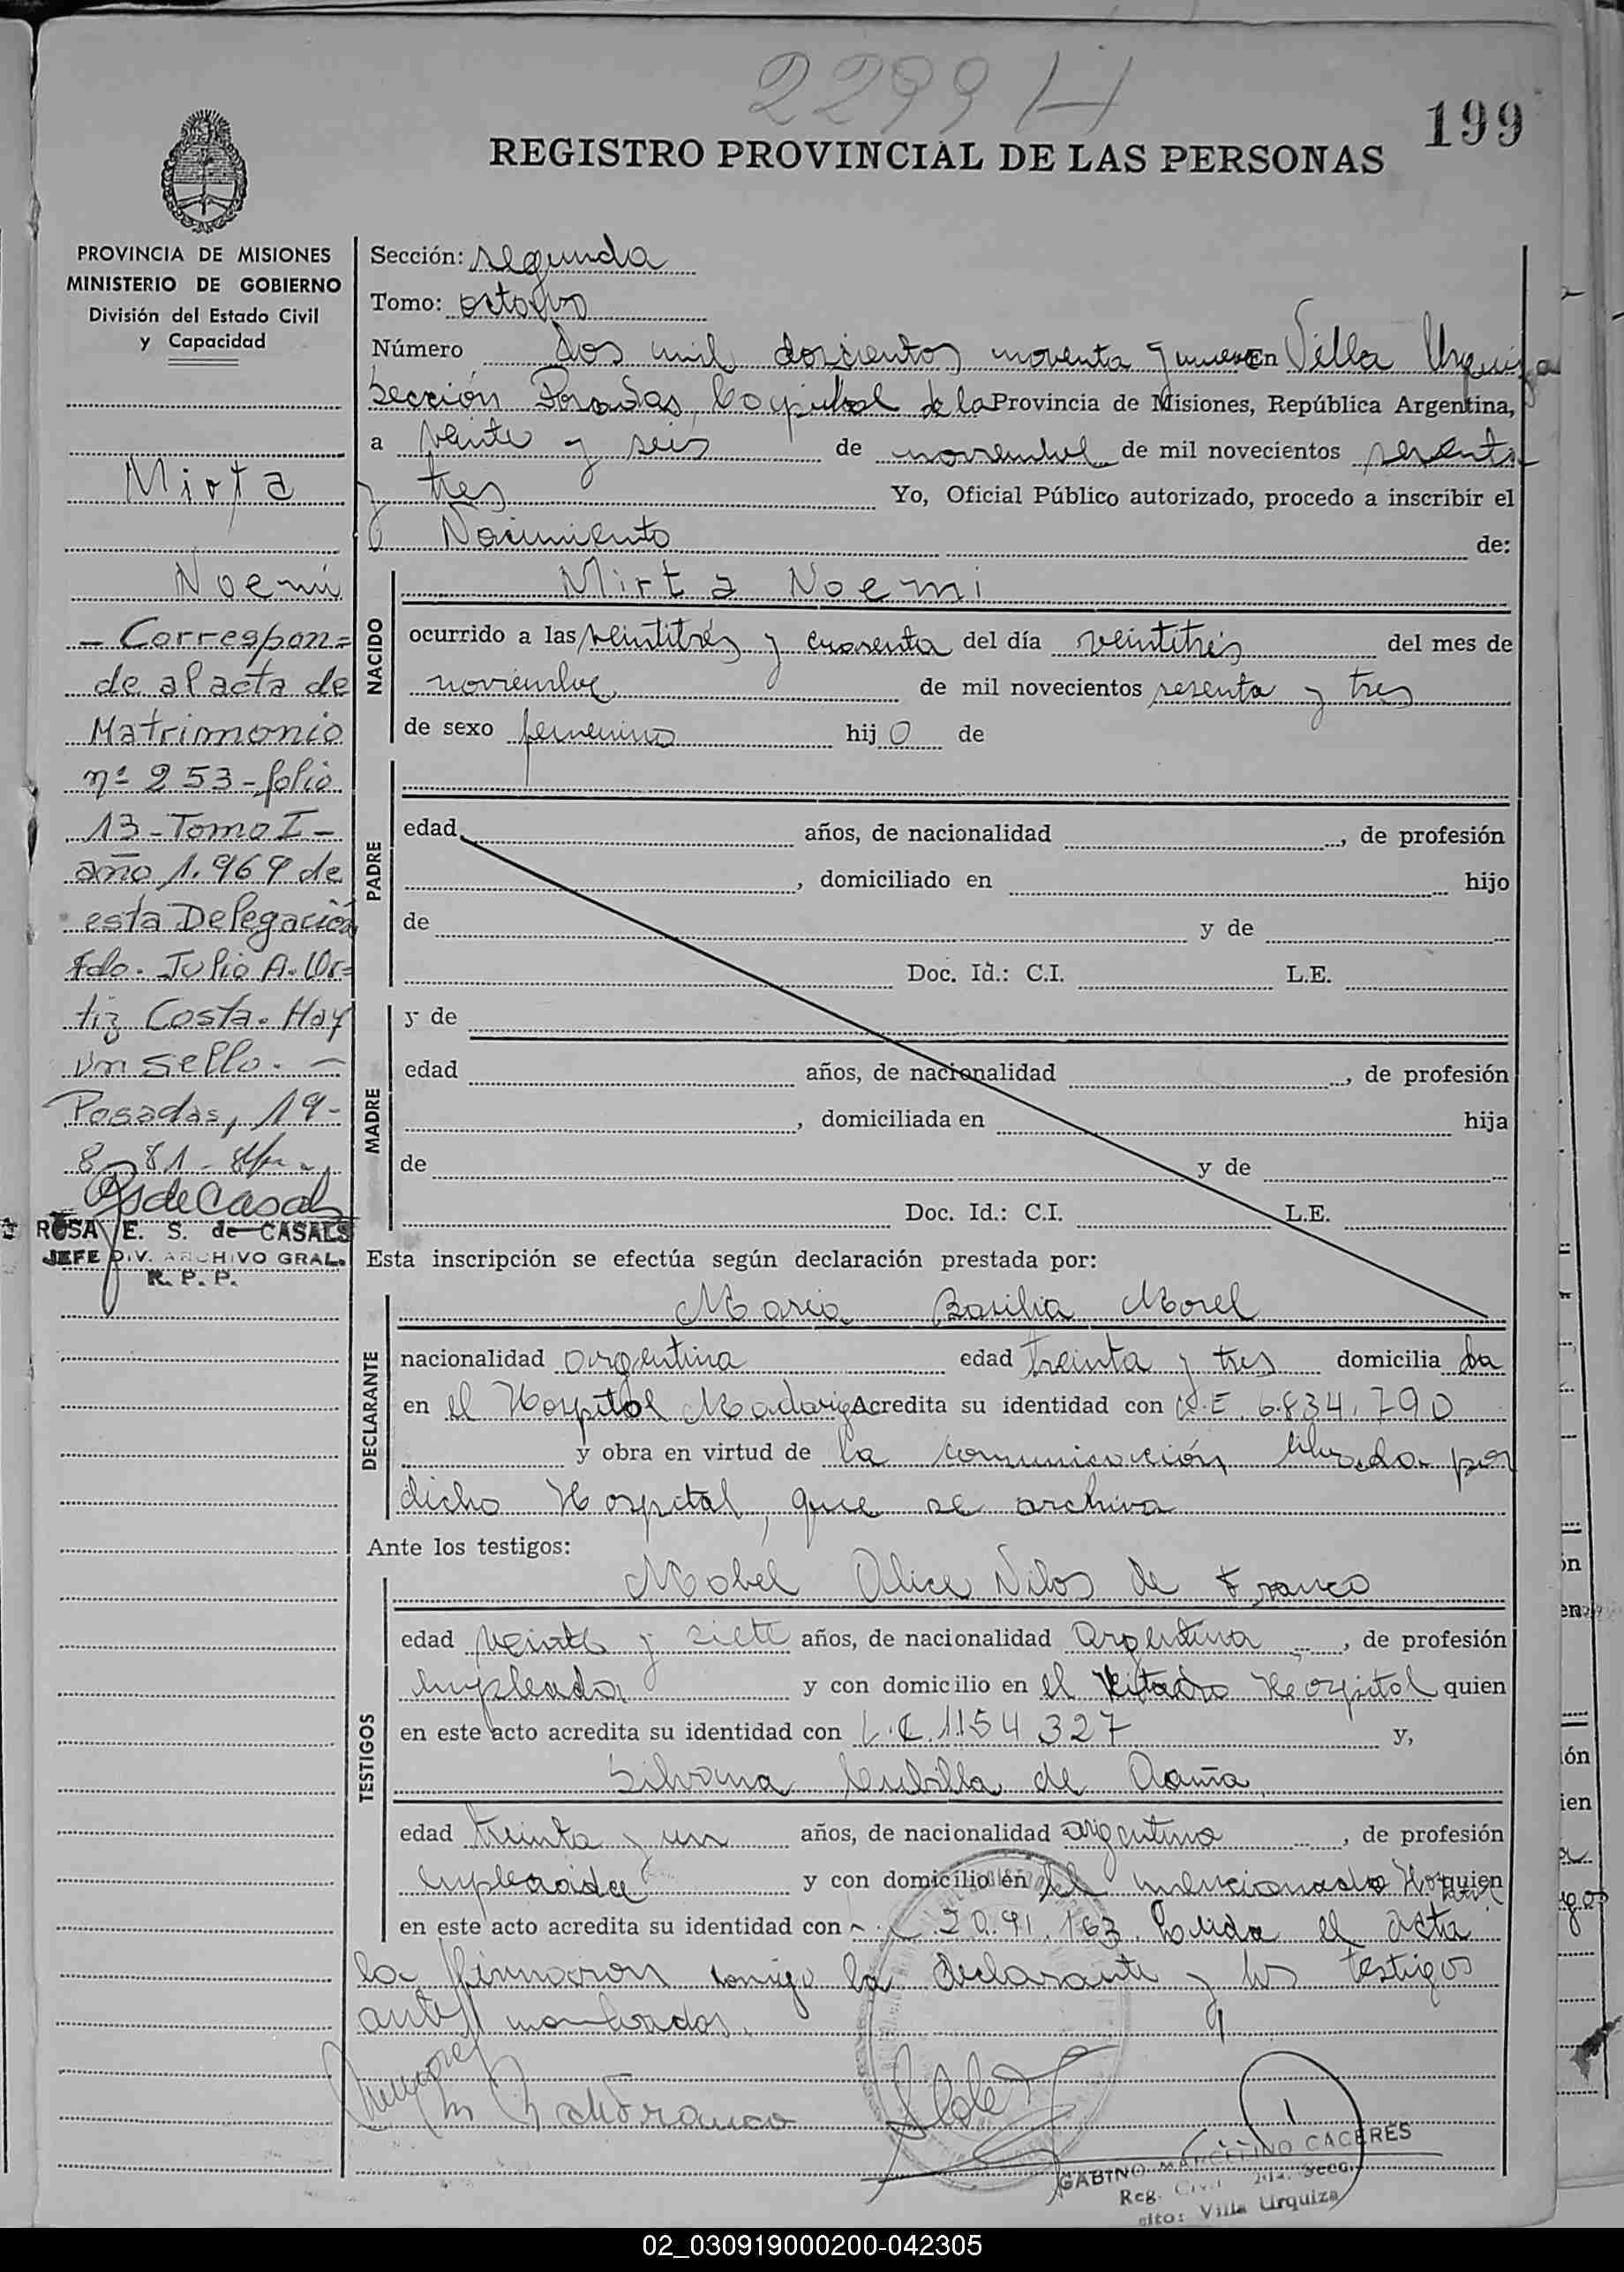 2299 H
199
REGISTRO PROVINCIAL DE LAS PERSONAS
PROVINCIA DE MISIONES
MINISTERIO DE GOBIERNO
División del Estado Civil
y Capacidad
Mirta
Noemi
- Correspon=
de al acta de
Matrimonio
nº 253 - folio
13 - Tomo I -
año 1.969 de
esta Delegación
Fdo. Julio A. Or=
tiz Costa. Hay
un sello. -
Posadas, 19-
8-81-
ROSA E. S. de CASALS
JEFE DIV. ARCHIVO GRAL.
R. P. P.
Sección: segunda
Tomo: octavo
Número dos mil doscientos noventa y nueve En Villa Urquiza
Sección Posadas, Capital de la Provincia de Misiones, República Argentina,
a veinte y seis de noviembre de mil novecientos sesenta
y tres Yo, Oficial Público autorizado, procedo a inscribir el
Nacimiento de:
NACIDO
Mirta Noemi
ocurrido a las veintitrés y cuarenta del día veintitrés del mes de
noviembre de mil novecientos sesenta y tres
de sexo femenino hijo de
PADRE
edad años, de nacionalidad , de profesión
, domiciliado en hijo
de y de
Doc. Id.: C.I. L.E.
MADRE
y de
edad años, de nacionalidad , de profesión
, domiciliada en hija
de y de
Doc. Id.: C.I. L.E.
Esta inscripción se efectúa según declaración prestada por:
DECLARANTE
Maria Basilia Morel
nacionalidad argentina edad treinta y tres domicilia da
en el Hospital Madariaga Acredita su identidad con 6.834.790
y obra en virtud de la comunicación librada por
dicho Hospital, que se archiva
Ante los testigos:
TESTIGOS
Mabel Alice Nilos de Franco
edad veinte y siete años, de nacionalidad argentina, de profesión
empleada y con domicilio en el citado Hospital quien
en este acto acredita su identidad con L.C. 1154327 y,
Silvana Cubilla de Acuña
edad treinta y un años, de nacionalidad argentina, de profesión
empleada y con domicilio en el mencionado Hospital quien
en este acto acredita su identidad con 20.91.163. Leida el acta
la firmaron conmigo la declarante y los testigos
antes nombrados.
GABINO MARCELINO CACERES
Reg. Civil 2da. Secc.
Villa Urquiza
02_030919000200-042305